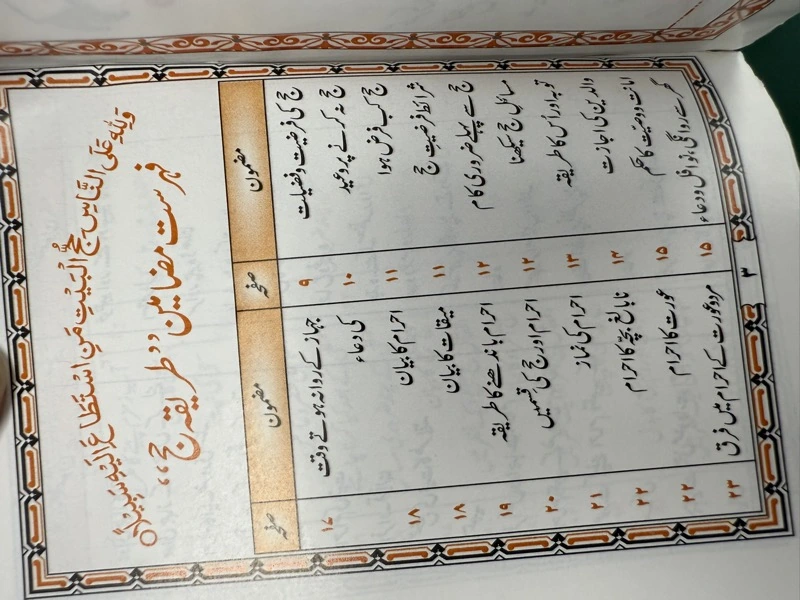 وَلِلّٰهِ عَلَى النَّاسِ حِجُّ الْبَيْتِ مَنِ اسْتَطَاعَ اِلَيْهِ سَبِيْلًاo
فہرست مضامین ’’طریقہ حج‘‘
مضمون صفحہ مضمون صفحہ
حج کی فرضیت و فضیلت ۹ جہاز کے روانہ ہوتے وقت ۱۷
حج نہ کرنے پر وعید ۱۰ کی دعاء
حج کب فرض ہوا ۱۱ احرام کا بیان ۱۸
شرائط فرضیتِ حج ۱۱ میقات کا بیان ۱۸
حج سے پہلے ضروری کام ۱۲ احرام باندھنے کا طریقہ ۱۹
مسائل حج سیکھنا ۱۲ احرام اور حج کی قسمیں ۲۰
توبہ اور اُس کا طریقہ ۱۳ احرام کی نماز ۲۱
والدین کی اجازت ۱۴ نابالغ بچّہ کا احرام ۲۲
امانت و وصیّت کا حکم ۱۵ عورت کا احرام ۲۲
گھر سے روانگی، نوافل و دعاء ۱۵ مرد و عورت کے احرام میں فرق ۲۳
۳